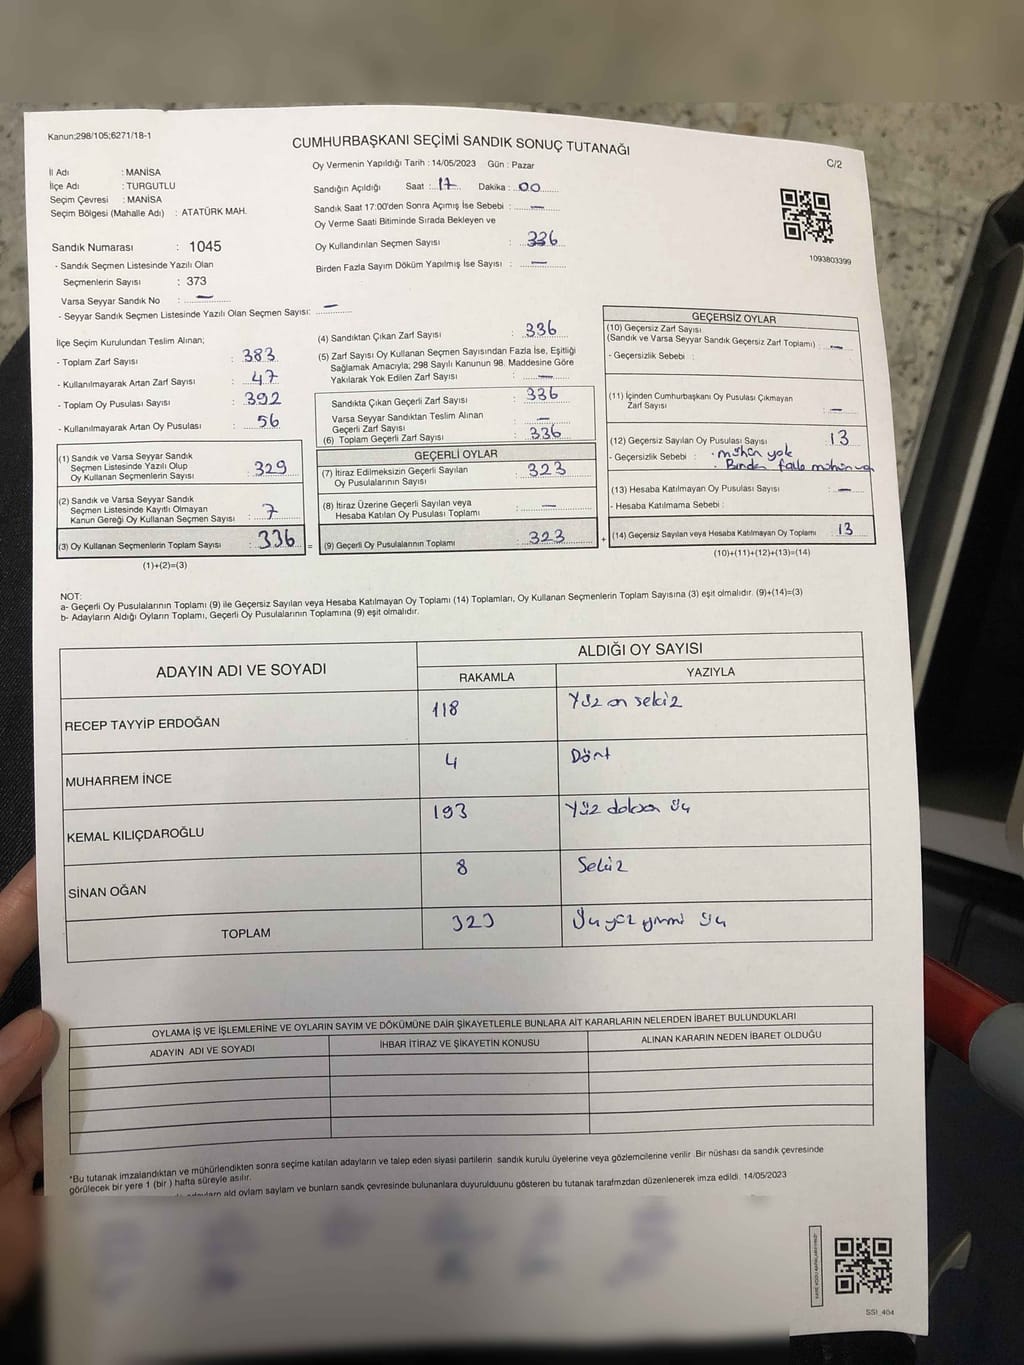 Kanun;298/105;6271/18-1
CUMHURBAŞKANI SEÇİMİ SANDIK SONUÇ TUTANAĞI
C/2
Oy Vermenin Yapıldığı Tarih : 14/05/2023 Gün : Pazar
İl Adı : MANİSA
İlçe Adı : TURGUTLU
Seçim Çevresi : MANİSA
Seçim Bölgesi (Mahalle Adı) : ATATÜRK MAH.
Sandığın Açıldığı Saat : 17 Dakika : 00
Sandık Saat 17:00'den Sonra Açımış İse Sebebi : —
Oy Verme Saati Bitiminde Sırada Bekleyen ve
Oy Kullandırılan Seçmen Sayısı : 336
Birden Fazla Sayım Döküm Yapılmış İse Sayısı : —
1093803399
Sandık Numarası : 1045
- Sandık Seçmen Listesinde Yazılı Olan
Seçmenlerin Sayısı : 373
Varsa Seyyar Sandık No : —
- Seyyar Sandık Seçmen Listesinde Yazılı Olan Seçmen Sayısı: —
İlçe Seçim Kurulundan Teslim Alınan;
- Toplam Zarf Sayısı : 383
- Kullanılmayarak Artan Zarf Sayısı : 47
- Toplam Oy Pusulası Sayısı : 392
- Kullanılmayarak Artan Oy Pusulası : 56
(1) Sandık ve Varsa Seyyar Sandık
Seçmen Listesinde Yazılı Olup
Oy Kullanan Seçmenlerin Sayısı : 329
(2) Sandık ve Varsa Seyyar Sandık
Seçmen Listesinde Kayıtlı Olmayan
Kanun Gereği Oy Kullanan Seçmen Sayısı : 7
(3) Oy Kullanan Seçmenlerin Toplam Sayısı : 336
(1)+(2)=(3)
(4) Sandıktan Çıkan Zarf Sayısı : 336
(5) Zarf Sayısı Oy Kullanan Seçmen Sayısından Fazla İse, Eşitliği
Sağlamak Amacıyla; 298 Sayılı Kanunun 98. Maddesine Göre
Yakılarak Yok Edilen Zarf Sayısı : —
Sandıkta Çıkan Geçerli Zarf Sayısı : 336
Varsa Seyyar Sandıktan Teslim Alınan
Geçerli Zarf Sayısı : —
(6) Toplam Geçerli Zarf Sayısı : 336
GEÇERLİ OYLAR
(7) İtiraz Edilmeksizin Geçerli Sayılan
Oy Pusulalarının Sayısı : 323
(8) İtiraz Üzerine Geçerli Sayılan veya
Hesaba Katılan Oy Pusulası Toplamı : —
= (9) Geçerli Oy Pusulalarının Toplamı : 323
GEÇERSİZ OYLAR
(10) Geçersiz Zarf Sayısı
(Sandık ve Varsa Seyyar Sandık Geçersiz Zarf Toplamı) : —
- Geçersizlik Sebebi :
(11) İçinden Cumhurbaşkanı Oy Pusulası Çıkmayan
Zarf Sayısı : —
(12) Geçersiz Sayılan Oy Pusulası Sayısı : 13
- Geçersizlik Sebebi : . mühür yok
. Birden fazla mühür
(13) Hesaba Katılmayan Oy Pusulası Sayısı : —
- Hesaba Katılmama Sebebi :
+ (14) Geçersiz Sayılan veya Hesaba Katılmayan Oy Toplamı : 13
(10)+(11)+(12)+(13)=(14)
NOT:
a- Geçerli Oy Pusulalarının Toplamı (9) ile Geçersiz Sayılan veya Hesaba Katılmayan Oy Toplamı (14) Toplamları, Oy Kullanan Seçmenlerin Toplam Sayısına (3) eşit olmalıdır. (9)+(14)=(3)
b- Adayların Aldığı Oyların Toplamı, Geçerli Oy Pusulalarının Toplamına (9) eşit olmalıdır.
ADAYIN ADI VE SOYADI
ALDIĞI OY SAYISI
RAKAMLA YAZIYLA
RECEP TAYYİP ERDOĞAN 118 Yüz on sekiz
MUHARREM İNCE 4 Dört
KEMAL KILIÇDAROĞLU 193 Yüz doksan üç
SİNAN OĞAN 8 Sekiz
TOPLAM 323 Üç yüz yirmi üç
OYLAMA İŞ VE İŞLEMLERİNE VE OYLARIN SAYIM VE DÖKÜMÜNE DAİR ŞİKAYETLERLE BUNLARA AİT KARARLARIN NELERDEN İBARET BULUNDUKLARI
ADAYIN ADI VE SOYADI İHBAR İTİRAZ VE ŞİKAYETİN KONUSU ALINAN KARARIN NEDEN İBARET OLDUĞU
*Bu tutanak imzalandıktan ve mühürlendikten sonra seçime katılan adayların ve talep eden siyasi partilerin sandık kurulu üyelerine veya gözlemcilerine verilir .Bir nüshası da sandık çevresinde
görülecek bir yere 1 (bir ) hafta süreyle asılır.
ald oylam saylam ve bunlarn sandk çevresinde bulunanlara duyurulduunu gösteren bu tutanak tarafmzdan düzenlenerek imza edildi. 14/05/2023
SSI_404